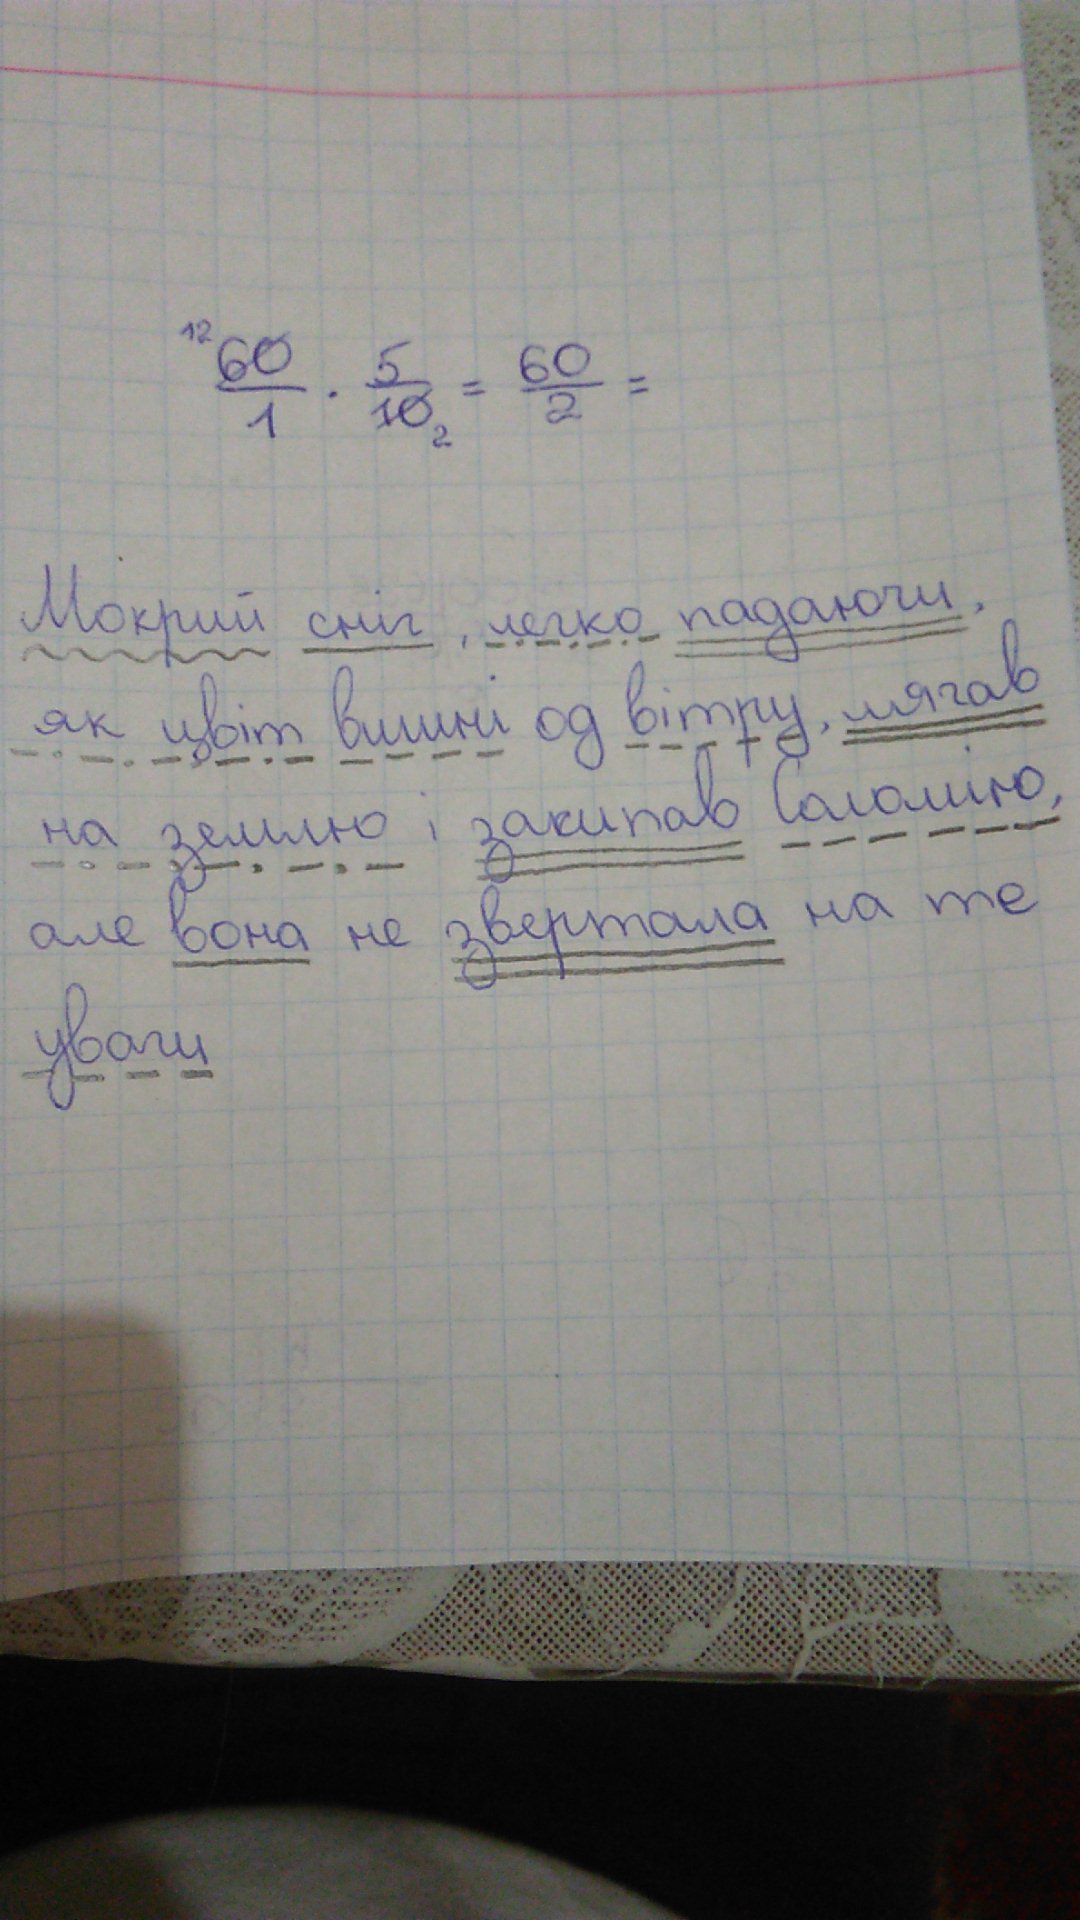 12 60/1 · 5/10 2 = 60/2 =
Мокрий сніг, легко падаючи,
як цвіт вишні од вітру, лягав
на землю і закипав Соломію,
але вона не звертала на те
уваги